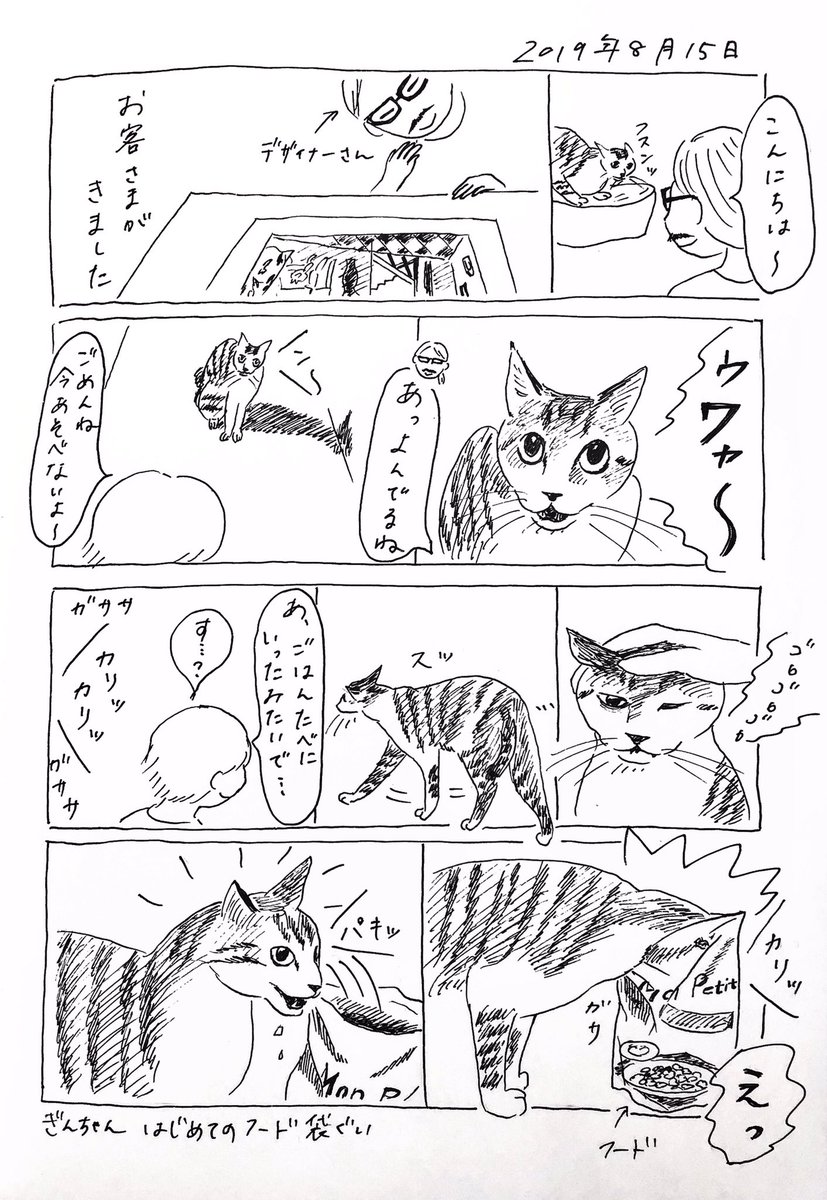 2019年8月15日
こんにちは〜
フスンッ
デザイナーさん
お客さまが
きました
ウワァ〜
あっよんでるね
ン〜
ごめんね
今あそべないよ〜
ゴロゴロゴロ
ズッ
あ、ごはんたべに
いったみたいで…
す…?
ガササ
カリッ
カリッ
ガササ
カリッ
Petit
ガサ
えっ
フード
パキッ
Mon P
ぎんちゃん はじめてのフード袋ぐい